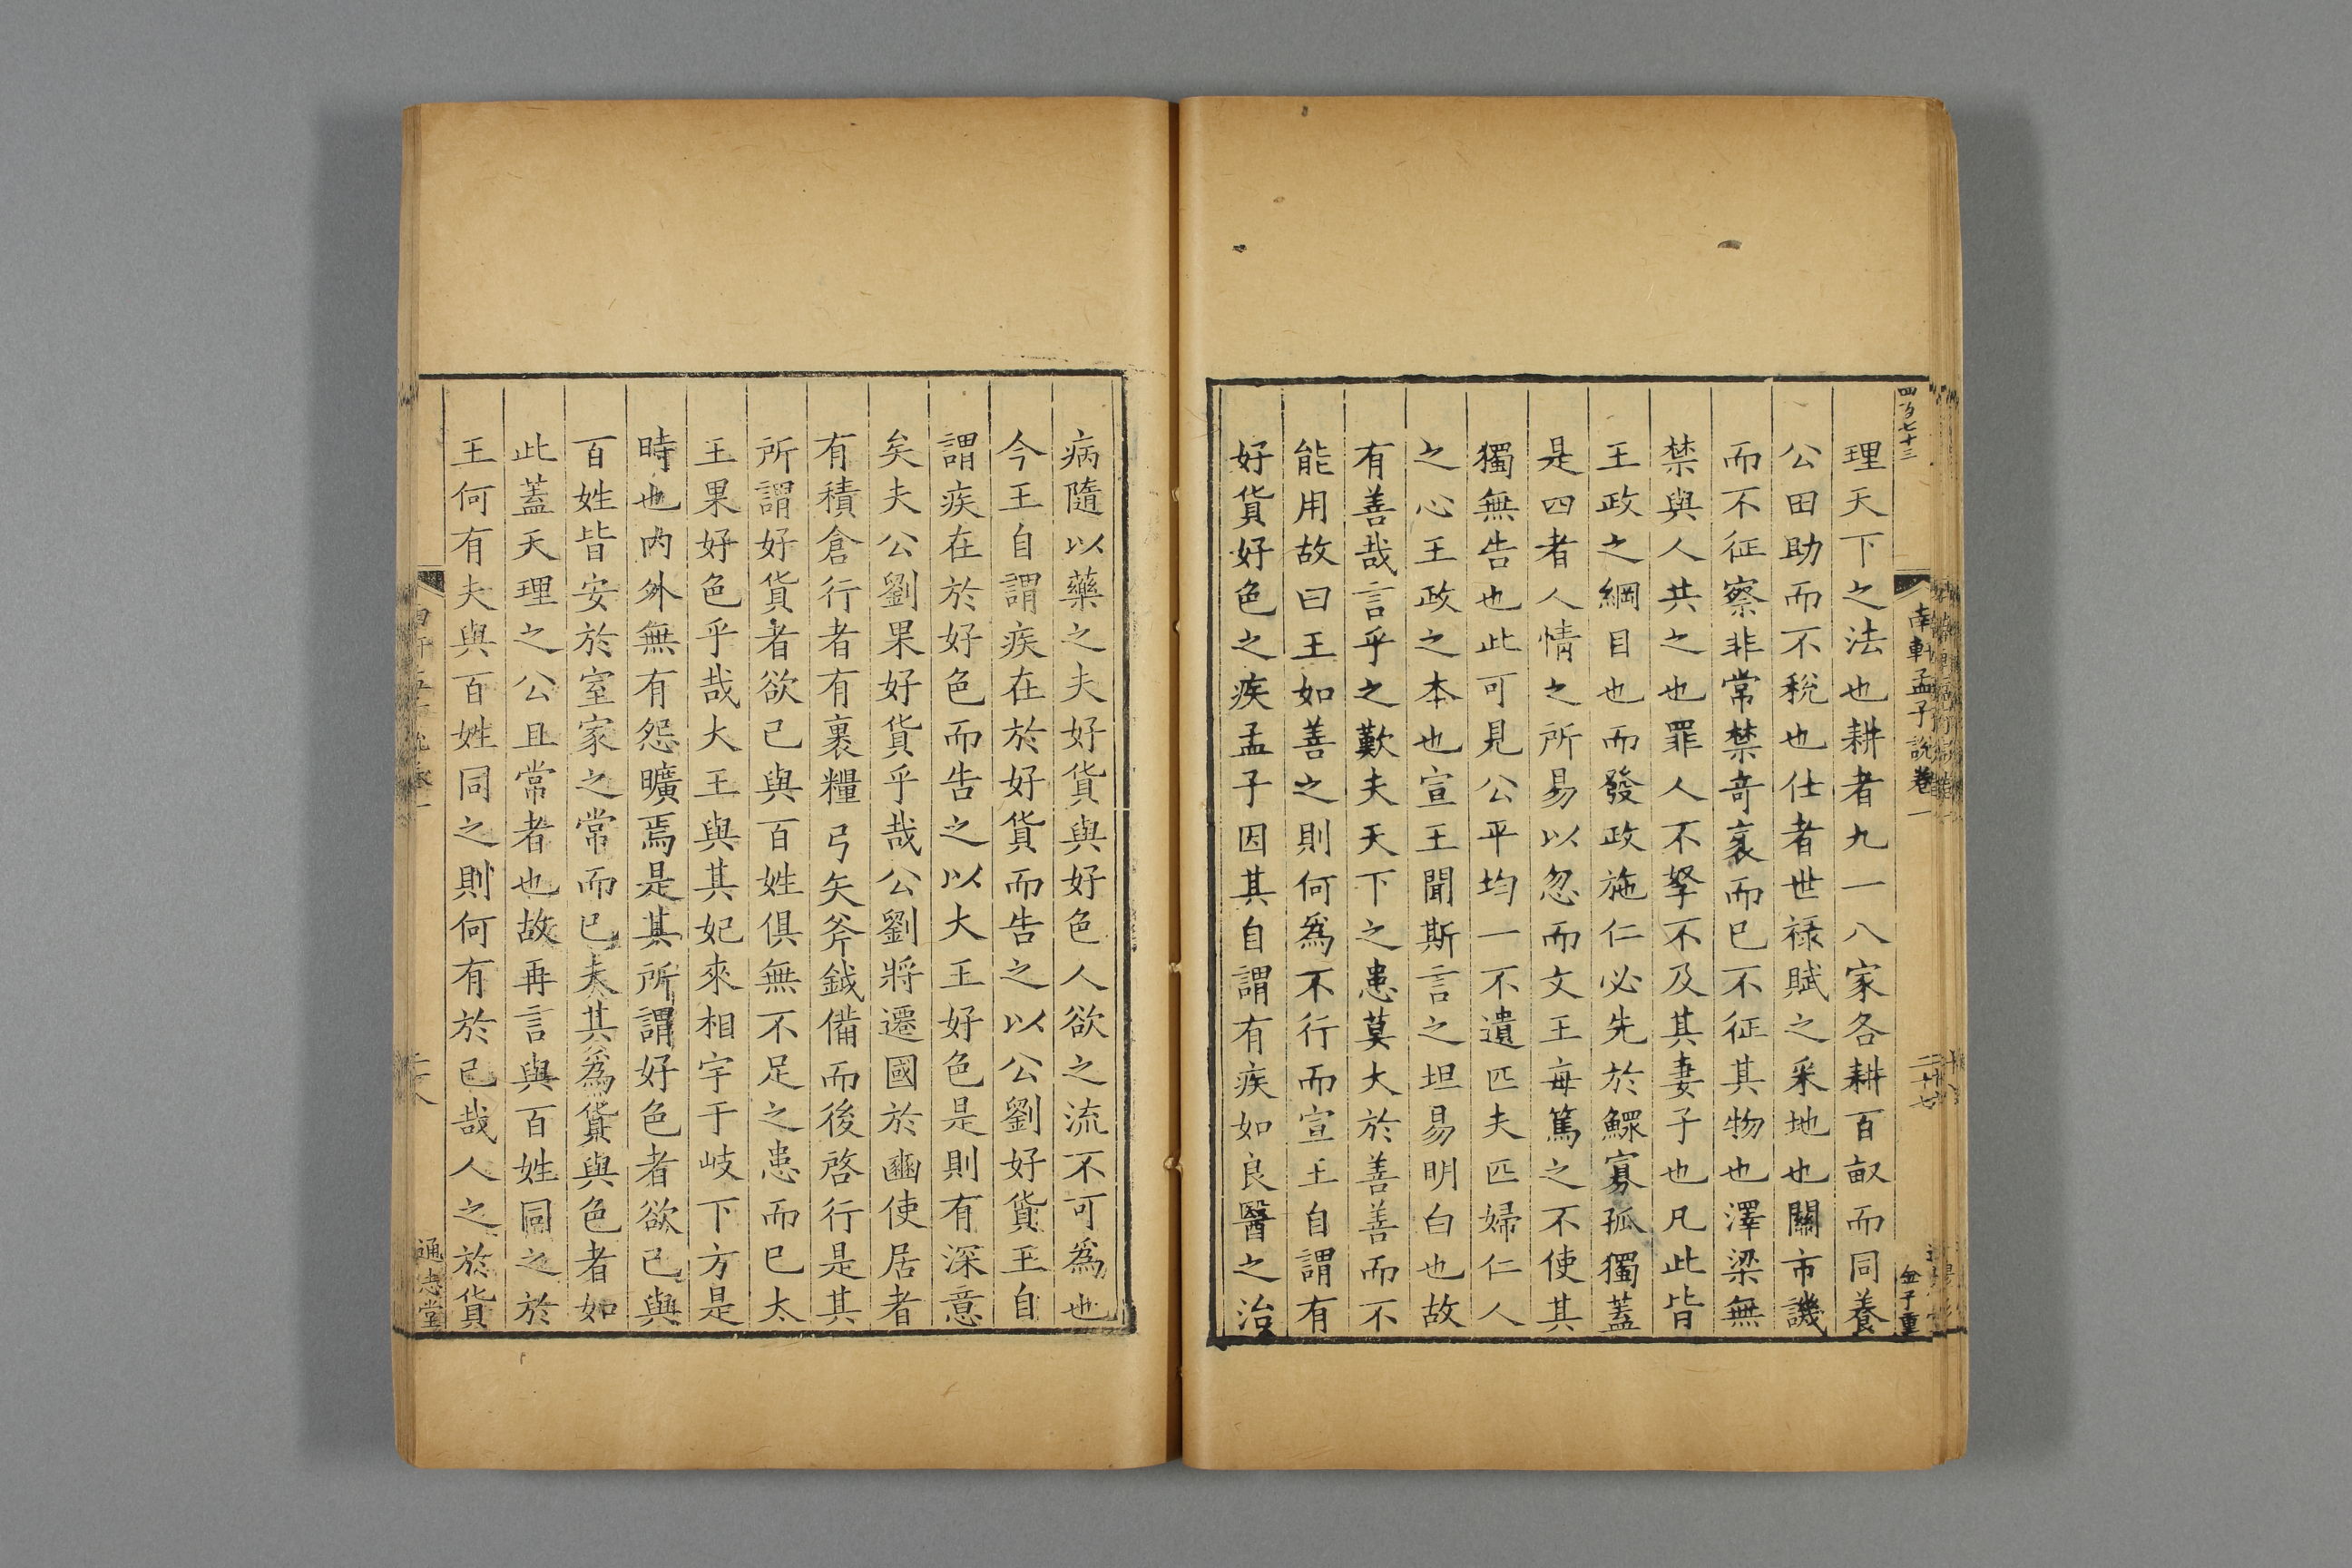 四百七十三
南軒孟子說卷一
二十七
金子重
理天下之法也耕者九一八家各耕百畝而同養
公田助而不稅也仕者世祿賦之采地也關市譏
而不征察非常禁竒衺而已不征其物也澤梁無
禁與人共之也罪人不孥不及其妻子也凡此皆
王政之綱目也而發政施仁必先於鰥寡孤獨蓋
是四者人情之所易以忽而文王每篤之不使其
獨無告也此可見公平均一不遺匹夫匹婦仁人
之心王政之本也宣王聞斯言之坦易明白也故
有善哉言乎之歎夫天下之患莫大於善善而不
能用故曰王如善之則何爲不行而宣王自謂有
好貨好色之疾孟子因其自謂有疾如良醫之治
病隨以藥之夫好貨與好色人欲之流不可爲也
今王自謂疾在於好貨而告之以公劉好貨王自
謂疾在於好色而告之以大王好色是則有深意
矣夫公劉果好貨乎哉公劉將遷國於豳使居者
有積倉行者有裹糧弓矢斧鉞備而後啓行是其
所謂好貨者欲己與百姓俱無不足之患而已太
王果好色乎哉大王與其妃來相宇于岐下方是
時也内外無有怨曠焉是其所謂好色者欲己與
百姓皆安於室家之常而已夫其爲貨與色者如
此蓋天理之公且常者也故再言與百姓同之於
王何有夫與百姓同之則何有於己哉人之於貨
通志堂